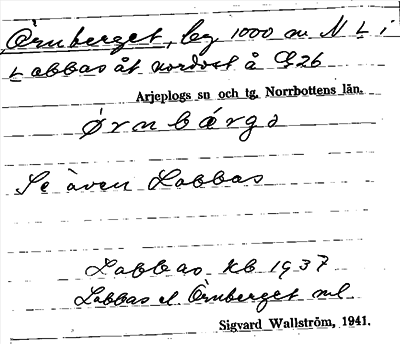 Örnberget, bg 1000 m N L i
Labbas åt nordost å G26
Arjeplogs sn och tg. Norrbottens län.
Ørnbærgə
Se även Labbas
Labbas kb 1937
Labbas el Örnberget ml
Sigvard Wallström, 1941.